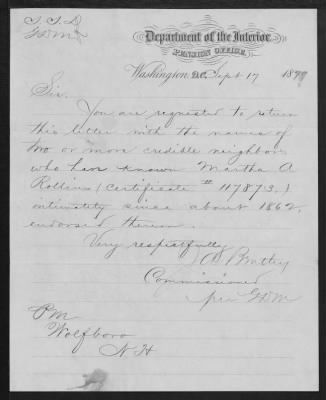 Department of the Interior,
PENSION OFFICE,
Washington, D.C. Sept 17 1879
Sir.
You are requested to return
this letter with the names of
two or more credible neighbors
who have known Martha A
Rollins (Certificate # 117873.)
intimately since about 1862,
endorsed thereon.
Very respectfully
Commissioner
per G.W.M
P.M
Wolfboro
N.H